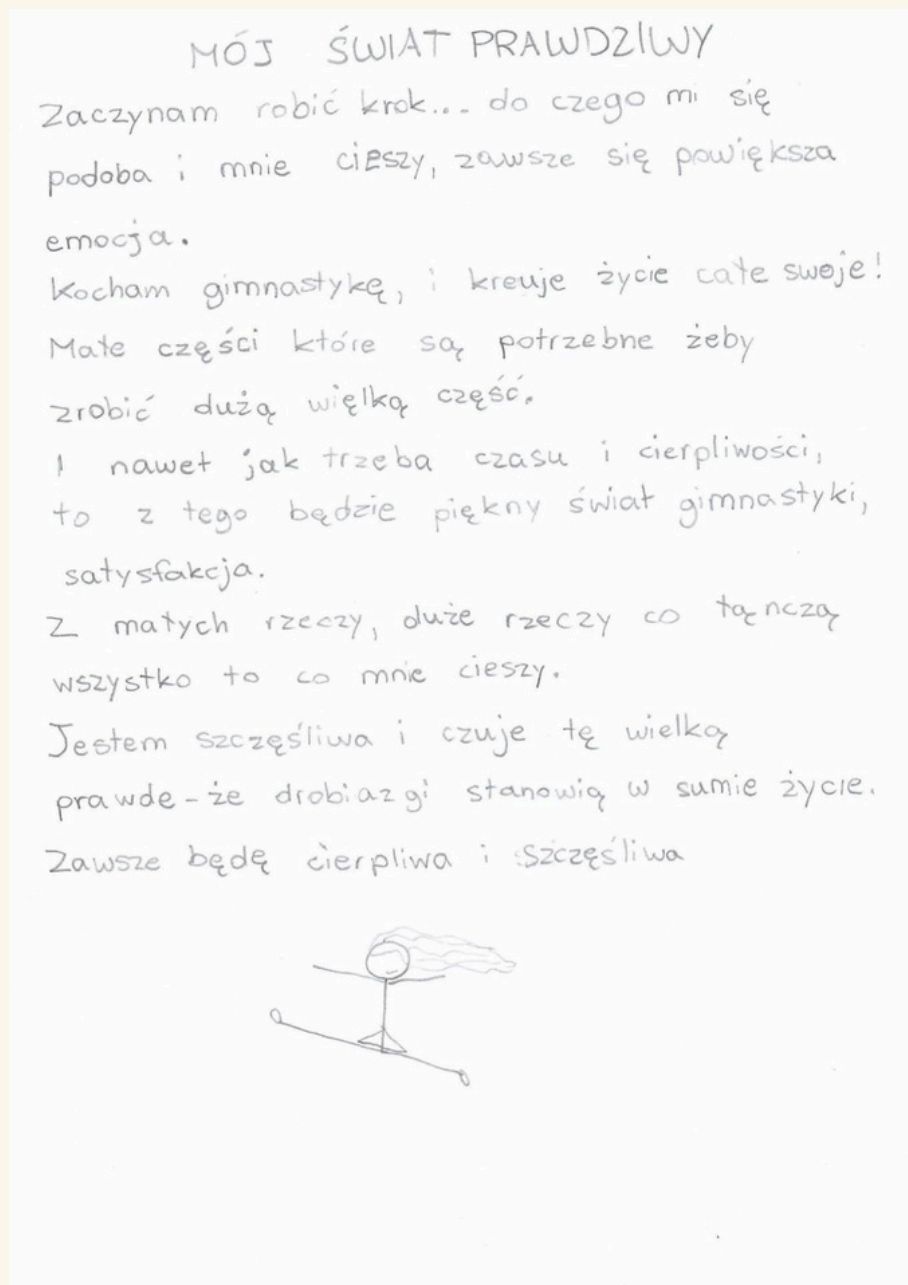 MÓJ ŚWIAT PRAWDZIWY
Zaczynam robić krok... do czego mi się
podoba i mnie cieszy, zawsze się powiększa
emocja.
Kocham gimnastykę, i kreuje życie całe swoje!
Małe części które są potrzebne żeby
zrobić dużą więlką część.
I nawet jak trzeba czasu i cierpliwości,
to z tego będzie piękny świat gimnastyki,
satysfakcja.
Z małych rzeczy, duże rzeczy co tąnczą
wszystko to co mnie cieszy.
Jestem szczęśliwa i czuje tę wielką
prawde - że drobiazgi stanowią w sumie życie.
Zawsze będę cierpliwa i szczęśliwa